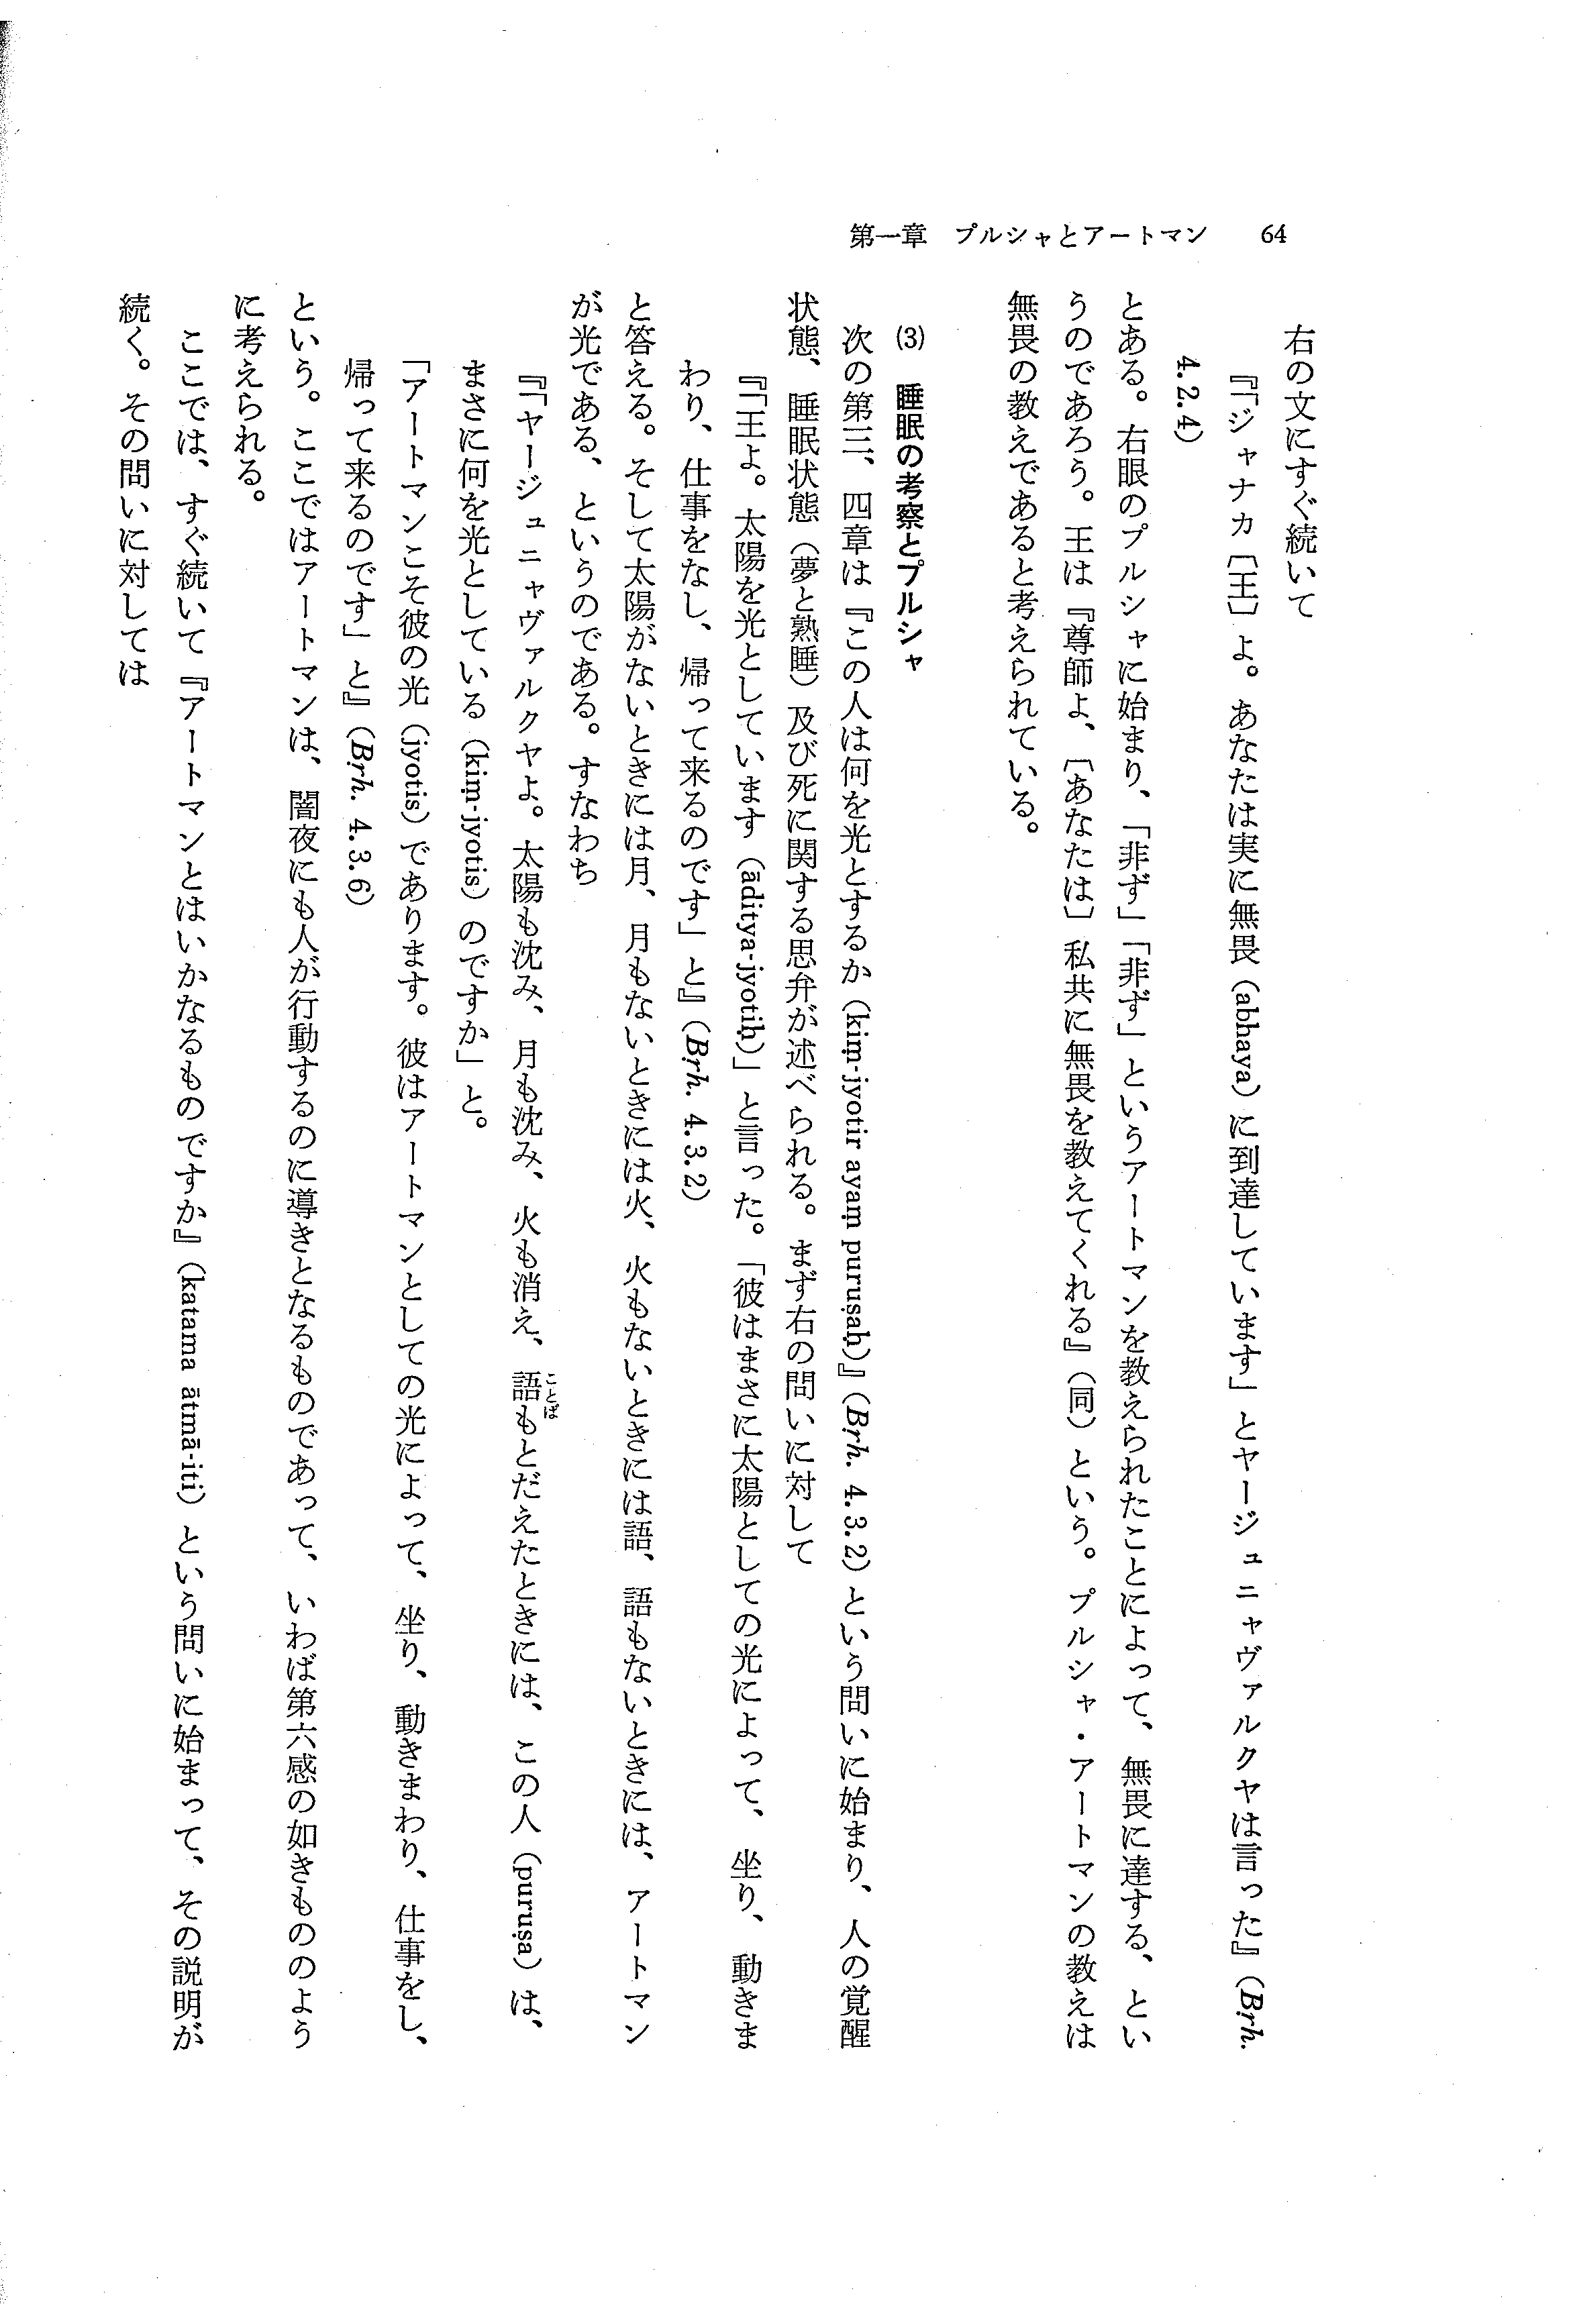 第一章　プルシャとアートマン　64
右の文にすぐ続いて
『「ジャナカ〔王〕よ。あなたは実に無畏（abhaya）に到達しています」とヤージュニャヴァルクヤは言った』（Bṛh.
4.2.4）
とある。右眼のプルシャに始まり、「非ず」「非ず」というアートマンを教えられたことによって、無畏に達する、とい
うのであろう。王は『尊師よ、〔あなたは〕私共に無畏を教えてくれる』（同）という。プルシャ・アートマンの教えは
無畏の教えであると考えられている。
(3)　睡眠の考察とプルシャ
次の第三、四章は『この人は何を光とするか（kiṃ-jyotir ayaṃ puruṣaḥ）』（Bṛh. 4.3.2）という問いに始まり、人の覚醒
状態、睡眠状態（夢と熟睡）及び死に関する思弁が述べられる。まず右の問いに対して
『「王よ。太陽を光としています（āditya-jyotiḥ）」と言った。「彼はまさに太陽としての光によって、坐り、動きま
わり、仕事をなし、帰って来るのです」と』（Bṛh. 4.3.2）
と答える。そして太陽がないときには月、月もないときには火、火もないときには語、語もないときには、アートマン
が光である、というのである。すなわち
『「ヤージュニャヴァルクヤよ。太陽も沈み、月も沈み、火も消え、語（ことば）もとだえたときには、この人（puruṣa）は、
まさに何を光としている（kiṃ-jyotis）のですか」と。
「アートマンこそ彼の光（jyotis）であります。彼はアートマンとしての光によって、坐り、動きまわり、仕事をし、
帰って来るのです」と』（Bṛh. 4.3.6）
という。ここではアートマンは、闇夜にも人が行動するのに導きとなるものであって、いわば第六感の如きもののよう
に考えられる。
ここでは、すぐ続いて『アートマンとはいかなるものですか』（katama ātmā-iti）という問いに始まって、その説明が
続く。その問いに対しては